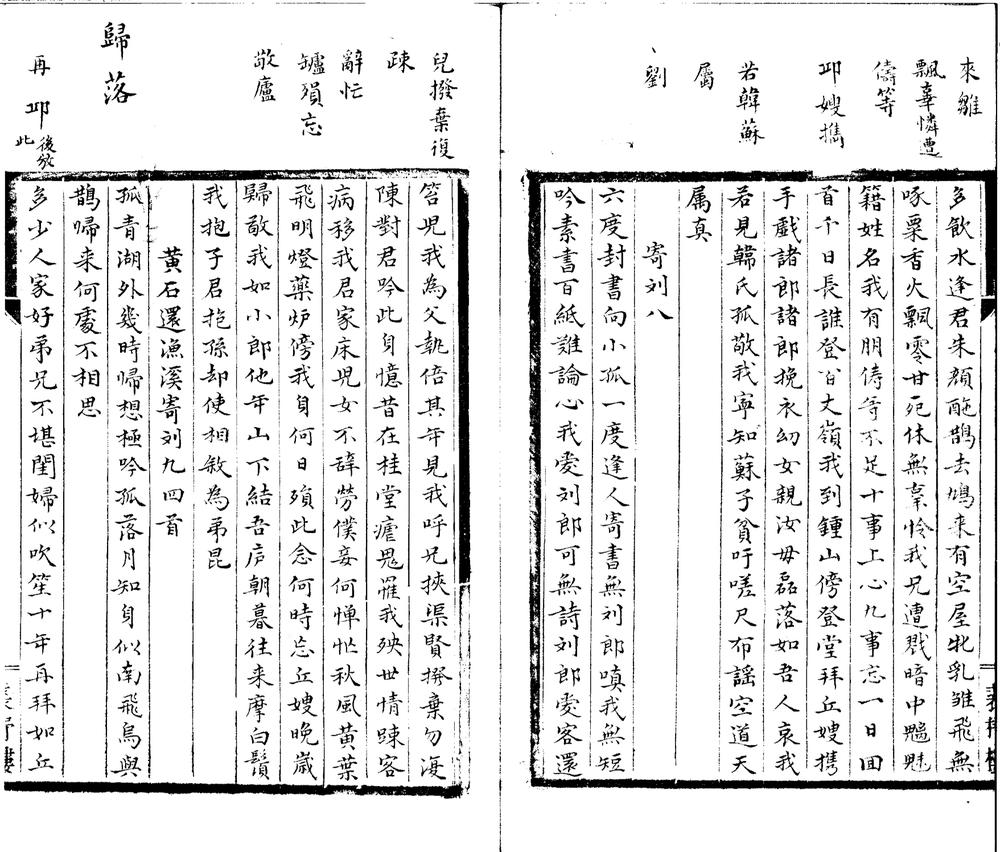 来雛
飄辜憐遭
儔等
邱嫂攜
若韓蘇
屬
劉
多飲水逢君朱顔酡鵲去鳩来有空屋牝乳雏飛無
啄粟香火飄零甘死休無辜怜我兄遭戮暗中魑魅
籍姓名我有朋俦等不足十事上心九事忘一日回
首千日長誰登百丈嶺我到鍾山傍登堂拜丘嫂携
手戲諸郎諸郎挽衣幼女親汝毋磊落如吾人哀我
若見韓氏孤敬我寧知蘇子貧吁嗟尺布謡空道天
属真
寄刘八
六度封書向小孤一度逢人寄書無刘郎嗔我無短
吟素書百紙難論心我愛刘郎可無詩刘郎愛客還
兒撥棄復
疎
辭忙
罏殞忘
敬廬
歸落
再 邱後倣此
答児我為父執倍其年見我呼兄挾渠賢撥棄勿復
陳對君吟此身憶昔在桂堂瘧鬼罹我殃世情踈客
病移我君家床児女不辞勞僕妾何惮忙秋風黄葉
飛明燈藥炉傍我身何日殞此念何時忘丘嫂晚歲
歸敬我如小郎他年山下結吾庐朝暮往来摩白鬚
我抱子君抱孫却使相敘為弟昆
黄石還漁溪寄刘九四首
孤青湖外幾時帰想極吟孤落月知身似南飛鳥與
鵲帰来何處不相思
多少人家好弟兄不堪閨婦似吹笙十年再拜如丘